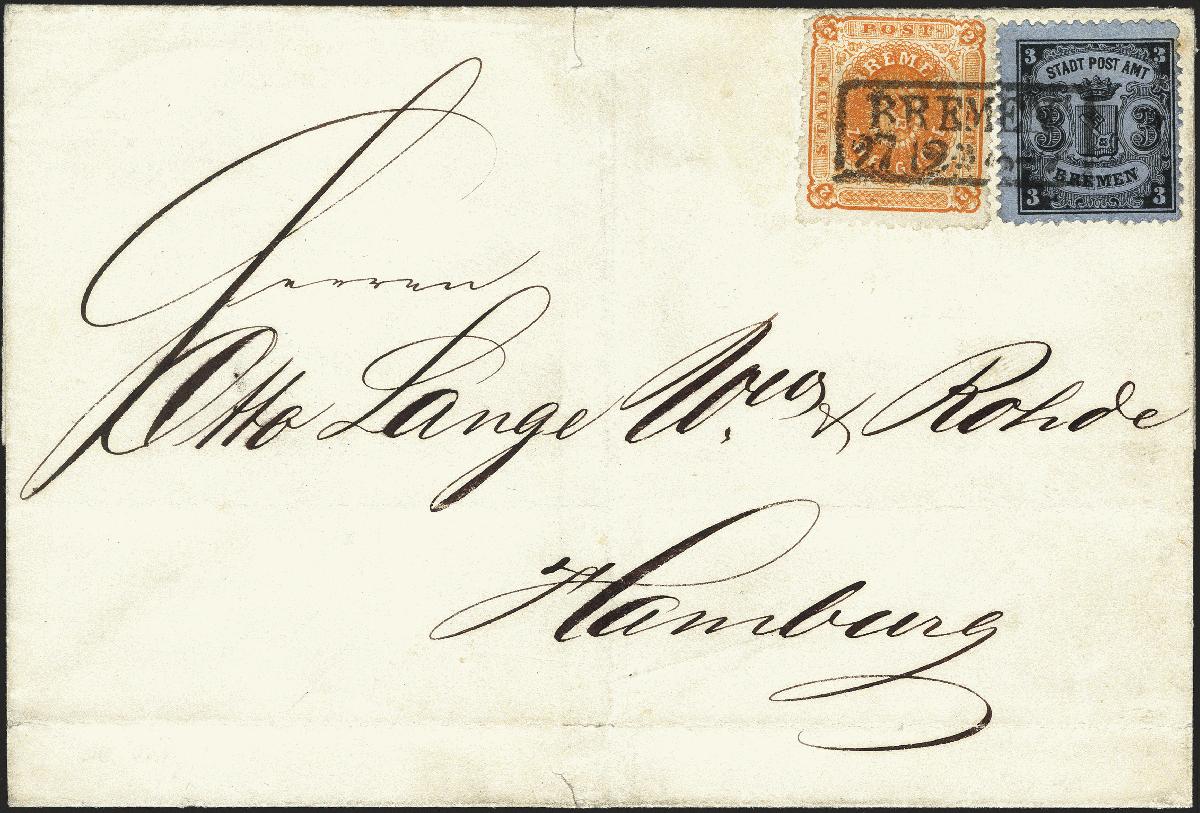 2 POST 2
STADT
BREMEN
2 2
3 3
STADT POST AMT
3 3
BREMEN
3 3
BREMEN
27 12
Herren
Otto Lange Wwe & Rohde
Hamburg